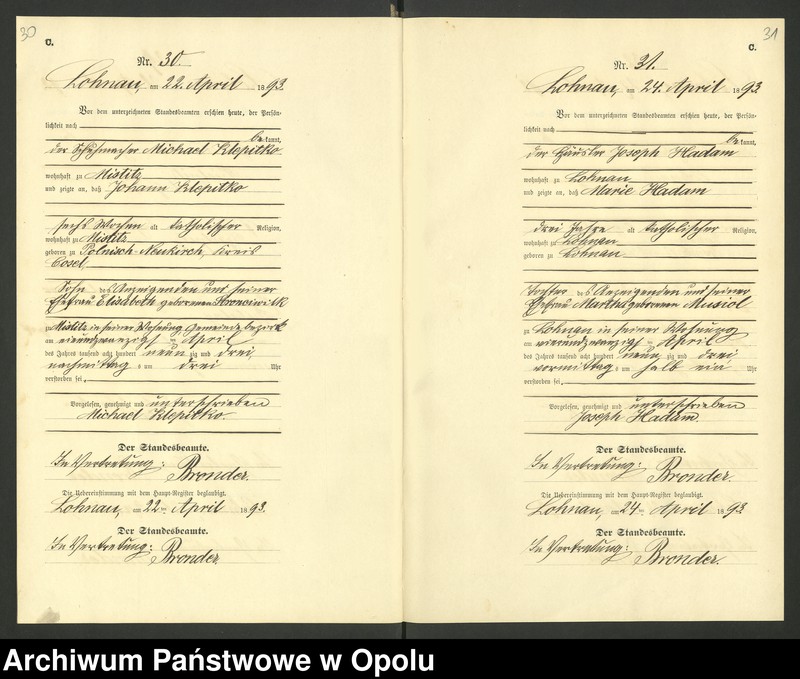 30
C.
Nr. 30.
Lohnau, am 22. April 1893.
Vor dem unterzeichneten Standesbeamten erschien heute, der Persön-
lichkeit nach
be kannt,
der Schuhmacher Michael Klepitko
wohnhaft zu Mistitz
und zeigte an, daß Johann Klepitko
sechs Wochen alt katholischer Religion,
wohnhaft zu Mistitz
geboren zu Polnisch-Neukirch, Kreis
Cosel
Sohn des Anzeigenden und seiner
Ehefrau Elisabeth geborenen
zu Mistitz in seiner Wohnung Gemeindebezirk
am einundzwanzigsten April
des Jahres tausend acht hundert neun zig und drei
nachmittag s um drei Uhr
verstorben sei.
Vorgelesen, genehmigt und unterschrieben
Michael Klepitko
Der Standesbeamte.
In Vertretung:
Bronder.
Die Uebereinstimmung mit dem Haupt-Register beglaubigt.
Lohnau, am 22ten April 1893.
Der Standesbeamte.
In Vertretung:
Bronder.
31
C.
Nr. 31.
Lohnau, am 24. April 1893
Vor dem unterzeichneten Standesbeamten erschien heute, der Persön-
lichkeit nach
be kannt,
der Häusler Joseph Hadam
wohnhaft zu Lohnau
und zeigte an, daß Marie Hadam
drei Jahre alt katholischer Religion,
wohnhaft zu Lohnau
geboren zu Lohnau
Tochter des Anzeigenden und seiner
Ehefrau Martha geborenen Musiol
zu Lohnau in seiner Wohnung
am vierundzwanzigsten April
des Jahres tausend acht hundert neun zig und drei
vormittag s um halb ein Uhr
verstorben sei.
Vorgelesen, genehmigt und unterschrieben
Joseph Hadam.
Der Standesbeamte.
In Vertretung:
Bronder.
Die Uebereinstimmung mit dem Haupt-Register beglaubigt.
Lohnau, am 24ten April 1893
Der Standesbeamte.
In Vertretung:
Bronder.
Archiwum Państwowe w Opolu